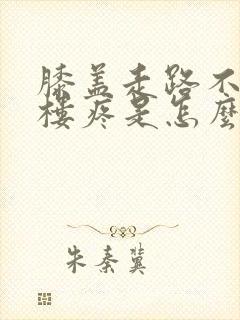 膝盖走路不
楼疼是怎麼
朱秦冀